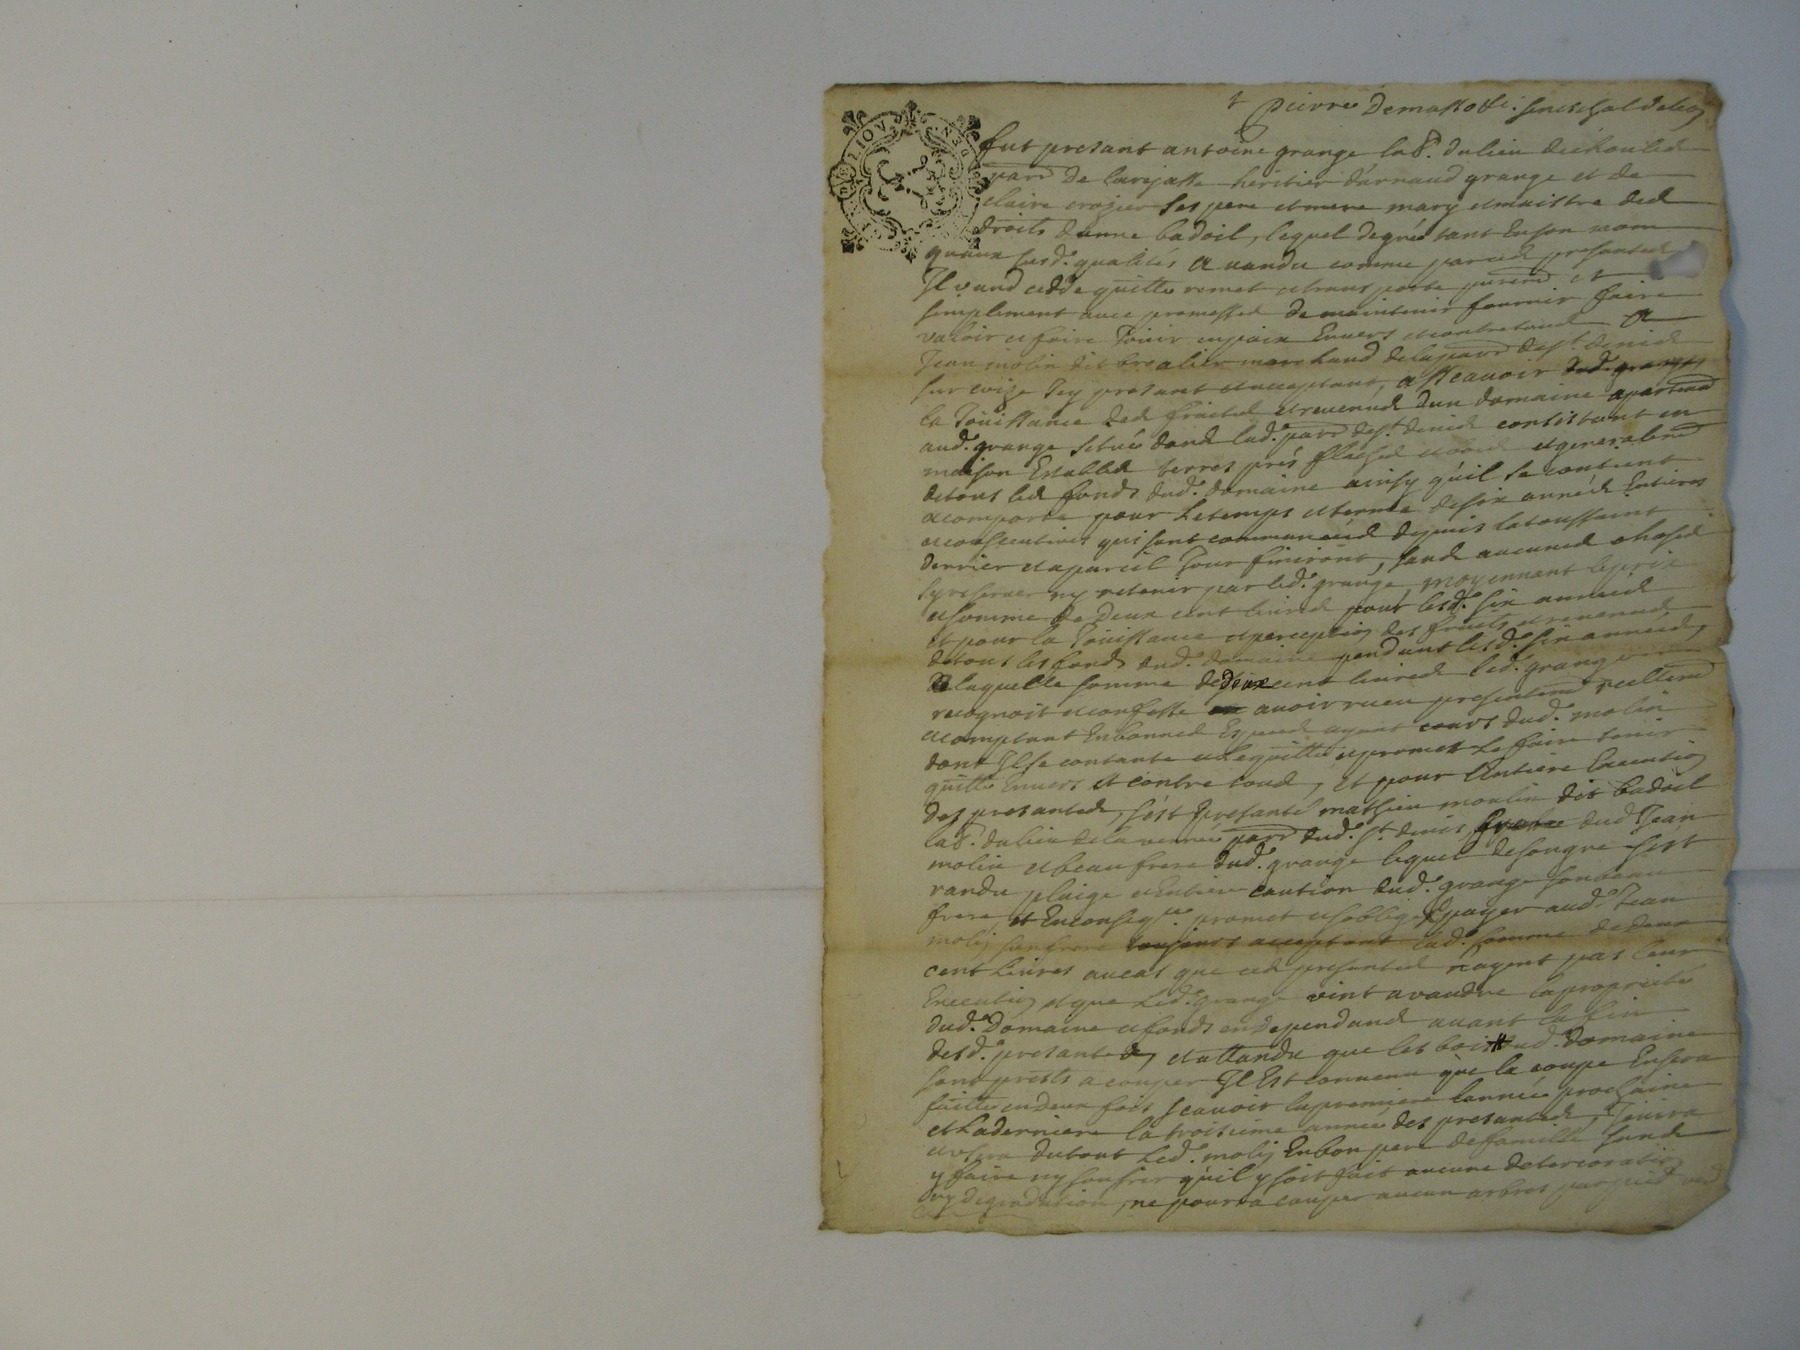 Pierre Demassotte. seneschal de leon
fut presant antoine grange lab.r du lieu
parr. de larejasse heritier d'arnaud grange et de
claire crozier ses pere et mere mary et maistre des
droits d'anne badoil, lequel de gré tant en son nom
qu'aux susd.es qualités a vandu comme par ces presantes
Il vand cedde quitte remet et transporte purem.t et
simplement avec promesses de maintenir fournir faire
valoir et faire Jouir en paix Envers et contre tous a
Jean molin dit marchand de la parr. de s.t denis
sur coize Icy presant et acceptant, asscavoir dud. grange
la Jouissance des fruits et revenus d'un domaine apartena.t
aud. grange situé dans lad. parr. de s.t denis consistant en
maison Estables terres prés et bois et generalem.t
de tous les fonds dud. domaine ainsy qu'il se contient
et comporte pour le temps et terme de six années Entieres
et consecutives qui sont commancées depuis la toussaint
dernier et a pareil Jour finiront, sans aucunes choses
sy reserver ny retenir par led. grange, moyennant le prix
et somme de Deux cent livres pour lesd. six années
et pour la Jouissance et perception des fruits et revenus
de tous les fonds dud. domaine pendant lesd. six années,
laquelle somme de deux cent livres led. grange
recognoit et confesse avoir receu presentem.t reellem.t
et comptant En bonnes Especes ayant cours dud. molin
dont Il se contante et le quitte et promet le faire tenir
quitte envers et contre tous, et pour l'Entiere Execution
des presantes, s'est presanté mathieu moulin dit badoil
lab.r du lieu de la parr. dud. s.t denis frere dud Jean
molin et beau frere dud. grange lequel de son gré s'est
randu plaige et Entiere caution dud. grange son beau
frere et En conseq.ce promet et s'oblige payer aud. Jean
molin son frere toujours acceptant lad. somme de deux
cent Livres au cas que ces presantes n'ayent pas leur
Execution et que Led. grange vint a vandre la proprieté
dud. Domaine et fonds en dependans avant la fin
desd. presantes, et attandu que les bois dud. domaine
sont prests a couper Il Est convenu que la coupe En sera
faitte en deux fois scavoir la premiere l'année prochaine
et La derniere la troisieme année des presantes, Jouira
et usera du tout Led. molin En bon pere de famille sans
y faire ny soufrir qu'il y soit fait aucune deterioration
ny degradation, ne pourra couper aucun arbres par pied